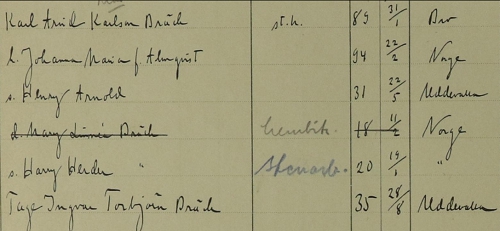 Karl Arvid Karlson Bräck st.h. 89 31/1 Bro
h. Johanna Maria f. Almqvist 94 22/2 Norge
s. Henry Arnold 31 22/5 Uddevalla
d. Mary Linnéa Bräck hembitr. 18 11/2 Norge
s. Harry Herder " 20 19/1 "
Tage Ingvar Torbjörn Bräck 35 28/8 Uddevalla